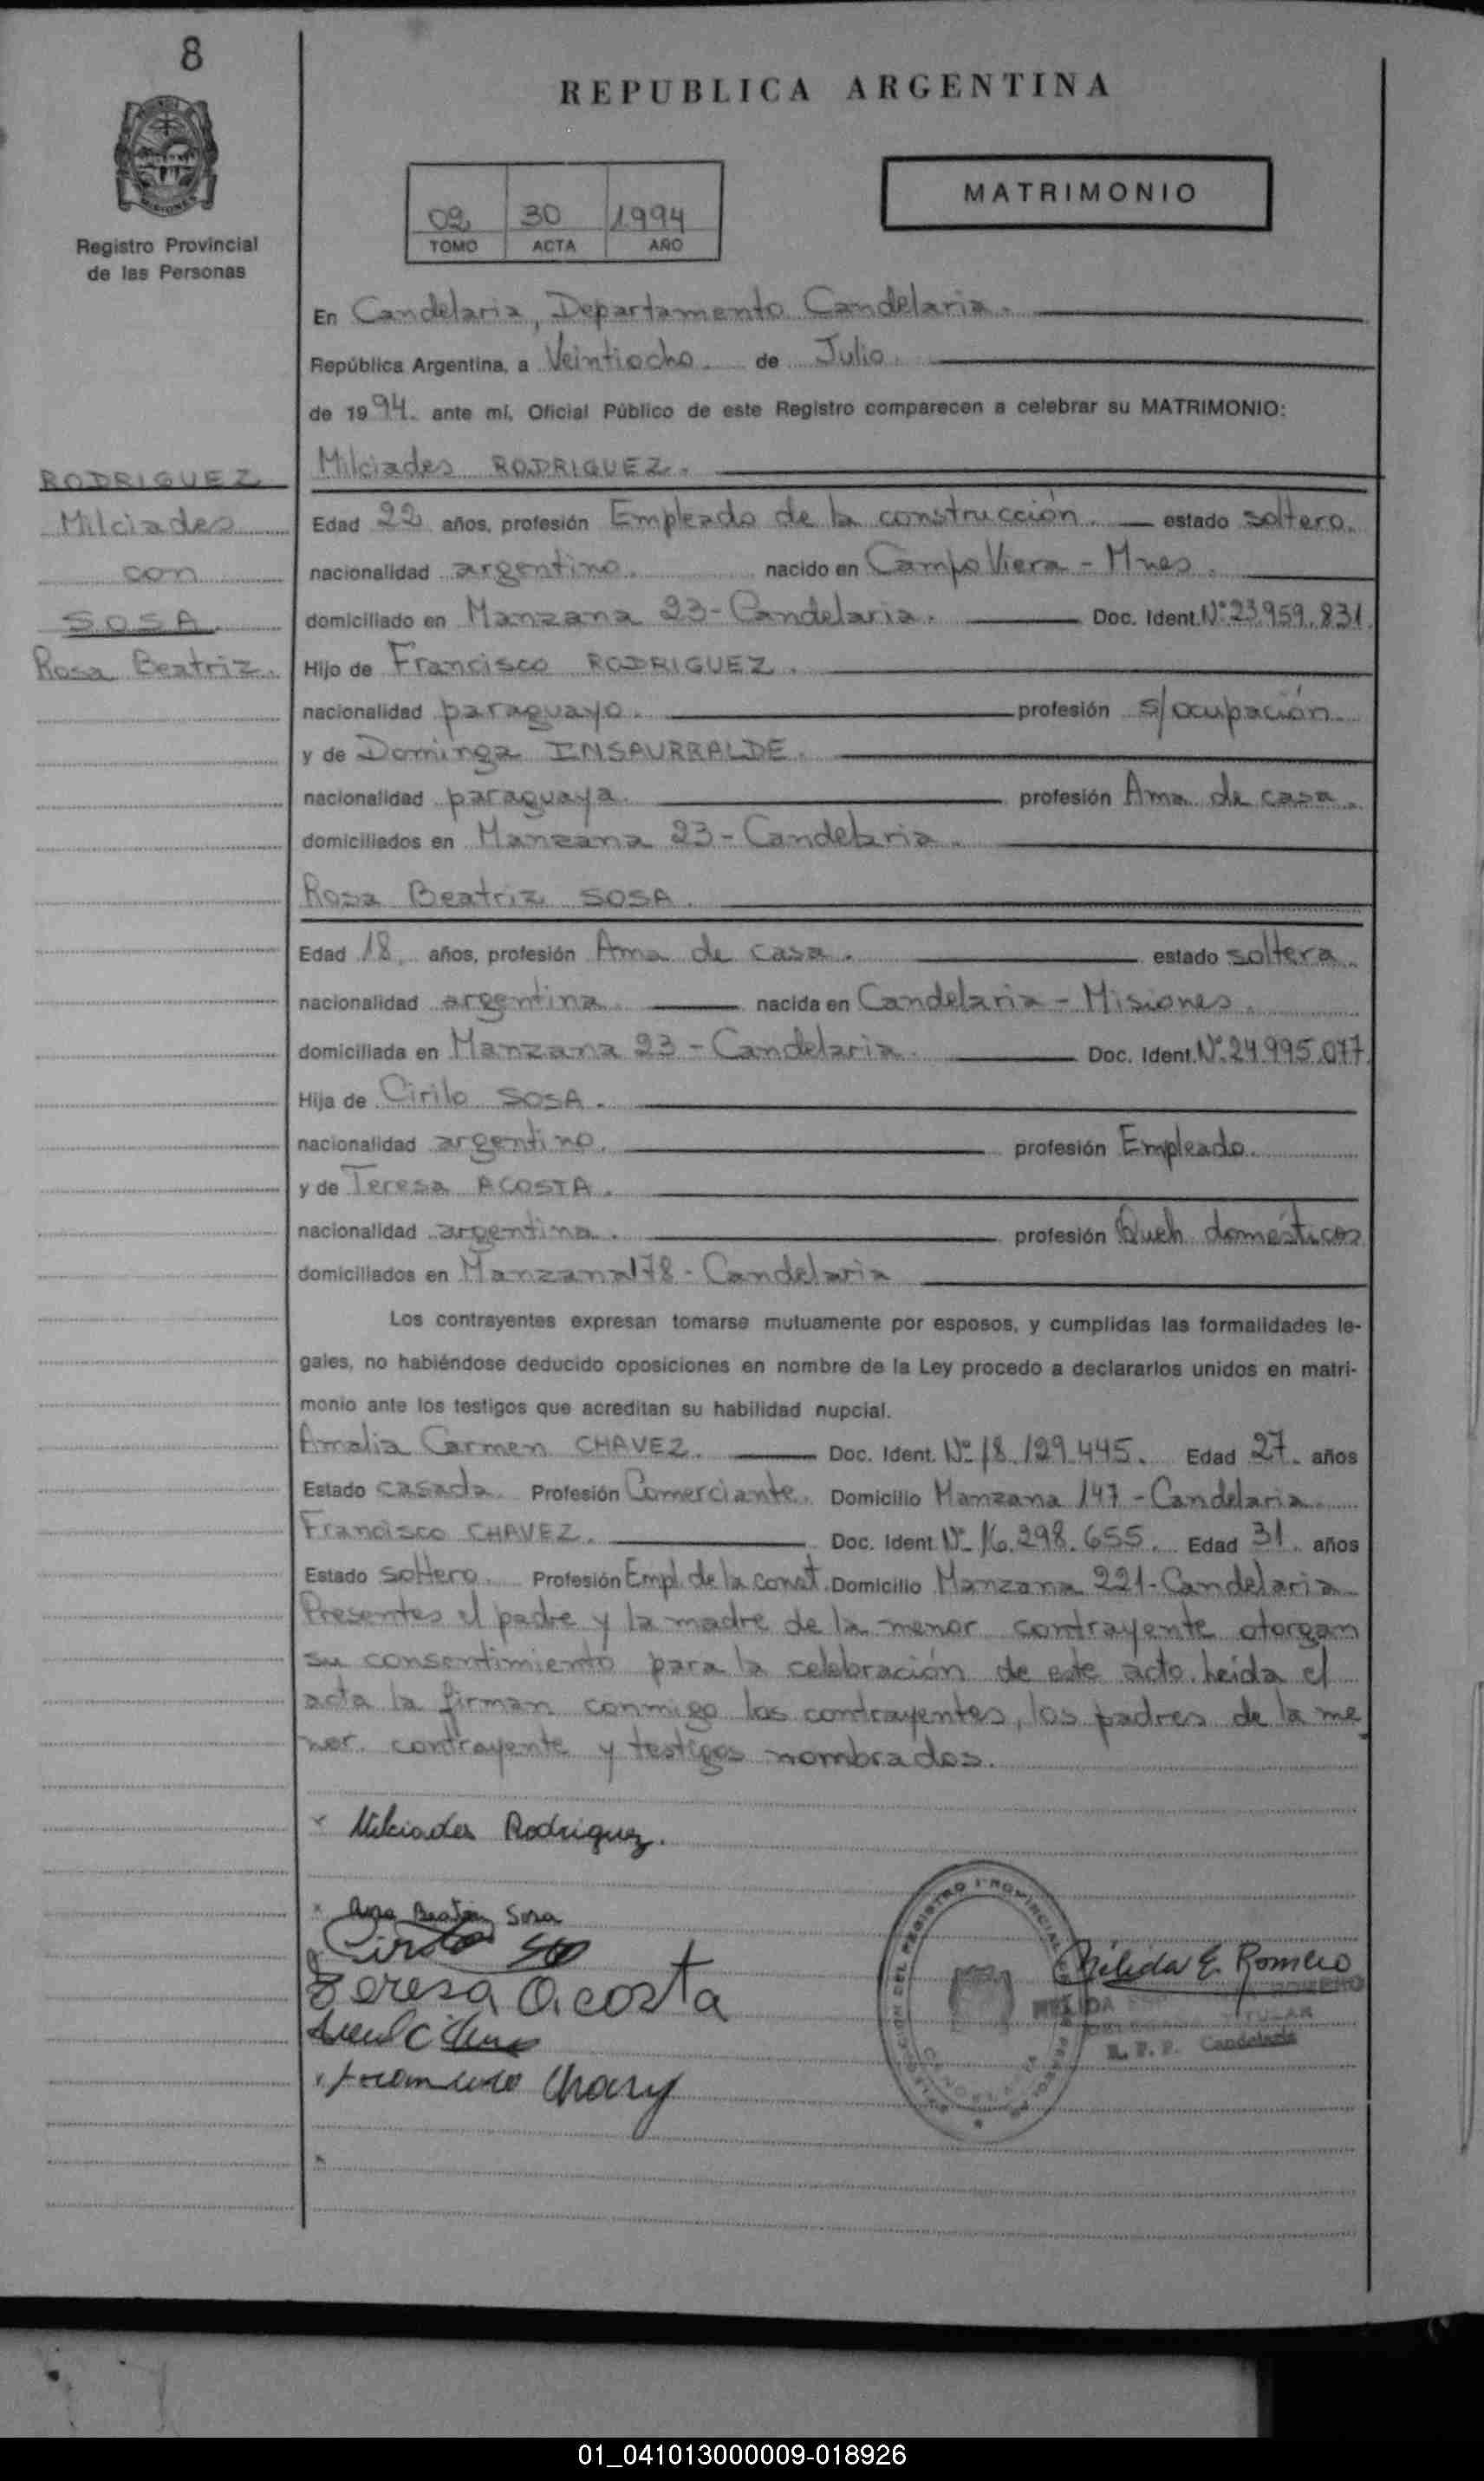 8
REPUBLICA ARGENTINA
MISIONES
Registro Provincial
de las Personas
02 30 1994
TOMO ACTA AÑO
MATRIMONIO
En Candelaria, Departamento Candelaria.
República Argentina, a Veintiocho. de Julio.
de 1994. ante mí, Oficial Público de este Registro comparecen a celebrar su MATRIMONIO:
RODRIGUEZ
Milciades
con
SOSA
Rosa Beatriz.
Milciades RODRIGUEZ.
Edad 22 años, profesión Empleado de la construcción. estado soltero.
nacionalidad argentino. nacido en Campo Viera - Mnes.
domiciliado en Manzana 23 - Candelaria. Doc. Ident. Nº 23.959.831.
Hijo de Francisco RODRIGUEZ.
nacionalidad paraguayo. profesión s/ocupación.
y de Dominga INSAURRALDE.
nacionalidad paraguaya. profesión Ama de casa.
domiciliados en Manzana 23 - Candelaria.
Rosa Beatriz SOSA.
Edad 18. años, profesión Ama de casa. estado soltera.
nacionalidad argentina. nacida en Candelaria - Misiones.
domiciliada en Manzana 23 - Candelaria. Doc. Ident. Nº 24.995.077
Hija de Cirilo SOSA.
nacionalidad argentino. profesión Empleado.
y de Teresa ACOSTA.
nacionalidad argentina. profesión Queh. domésticos
domiciliados en Manzana 178 - Candelaria
Los contrayentes expresan tomarse mutuamente por esposos, y cumplidas las formalidades le-
gales, no habiéndose deducido oposiciones en nombre de la Ley procedo a declararlos unidos en matri-
monio ante los testigos que acreditan su habilidad nupcial.
Amalia Carmen CHAVEZ. Doc. Ident. Nº 18.129.445. Edad 27. años
Estado casada. Profesión Comerciante. Domicilio Manzana 147 - Candelaria.
Francisco CHAVEZ. Doc. Ident. Nº 16.298.655. Edad 31. años
Estado soltero. Profesión Empl. de la const. Domicilio Manzana 221 - Candelaria
Presentes el padre y la madre de la menor contrayente otorgan
su consentimiento para la celebración de este acto. Leída el
acta la firman conmigo los contrayentes, los padres de la me
nor. contrayente y testigos nombrados.
Milciades Rodriguez.
Rosa Beatriz Sosa
Cirilo
Teresa Acosta
Nélida E. Romero
NELIDA ROMERO
TITULAR
R. P. P. Candelaria
01_041013000009-018926